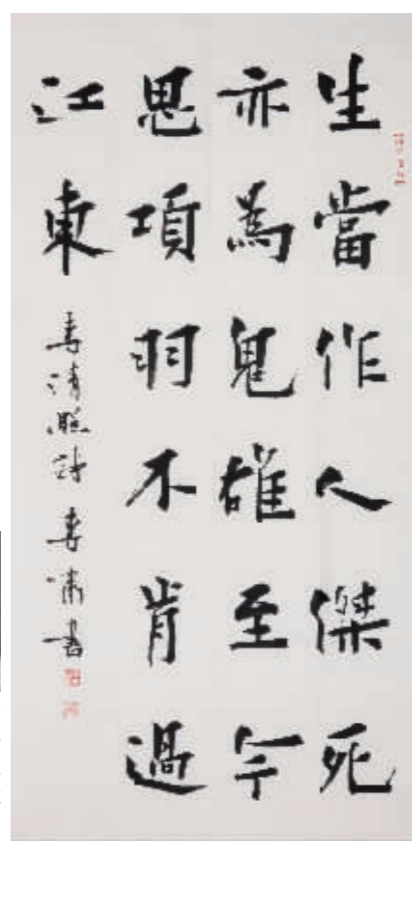 生當作人傑死
亦為鬼雄至今
思項羽不肯過
江東
李清照詩 李肅書